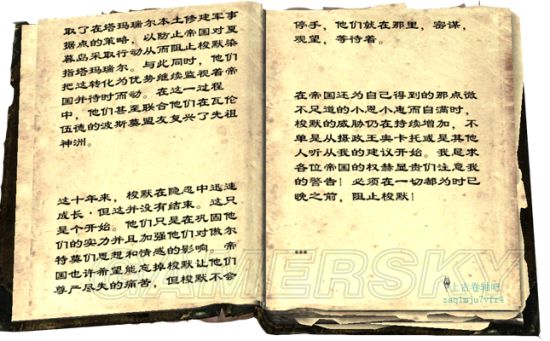 取了在塔玛瑞尔本土修建军事
据点的策略，以防止帝国对夏
暮岛采取行动从而阻止梭默染
指塔玛瑞尔。与此同时，他们
把这转化为优势继续监视着帝
国并待时而动。在这一过程
中，他们甚至联合他们在瓦伦
伍德的波斯莫盟友复兴了先祖
神洲。
这十年来，梭默在隐忍中迅速
成长·但这并没有结束。这只
是个开始。他们只是在巩固他
们的实力并且加强他们对傲尔
特莫们思想和情感的影响。帝
国也许希望能忘掉梭默让他们
尊严尽失的痛苦，但梭默不会
停手，他们就在那里，密谋，
观望，等待着。
在帝国还为自己得到的那点微
不足道的小恩小惠而自满时，
梭默的威胁仍在持续增加，不
单是从摄政王奥卡托或是其他
人听从我的建议开始。我恳求
各位帝国的权赫显贵们注意我
的警告！必须在一切都为时已
晚之前，阻止梭默！
***
GAMERSKY
上古卷轴吧
zaq1mju7vfr4